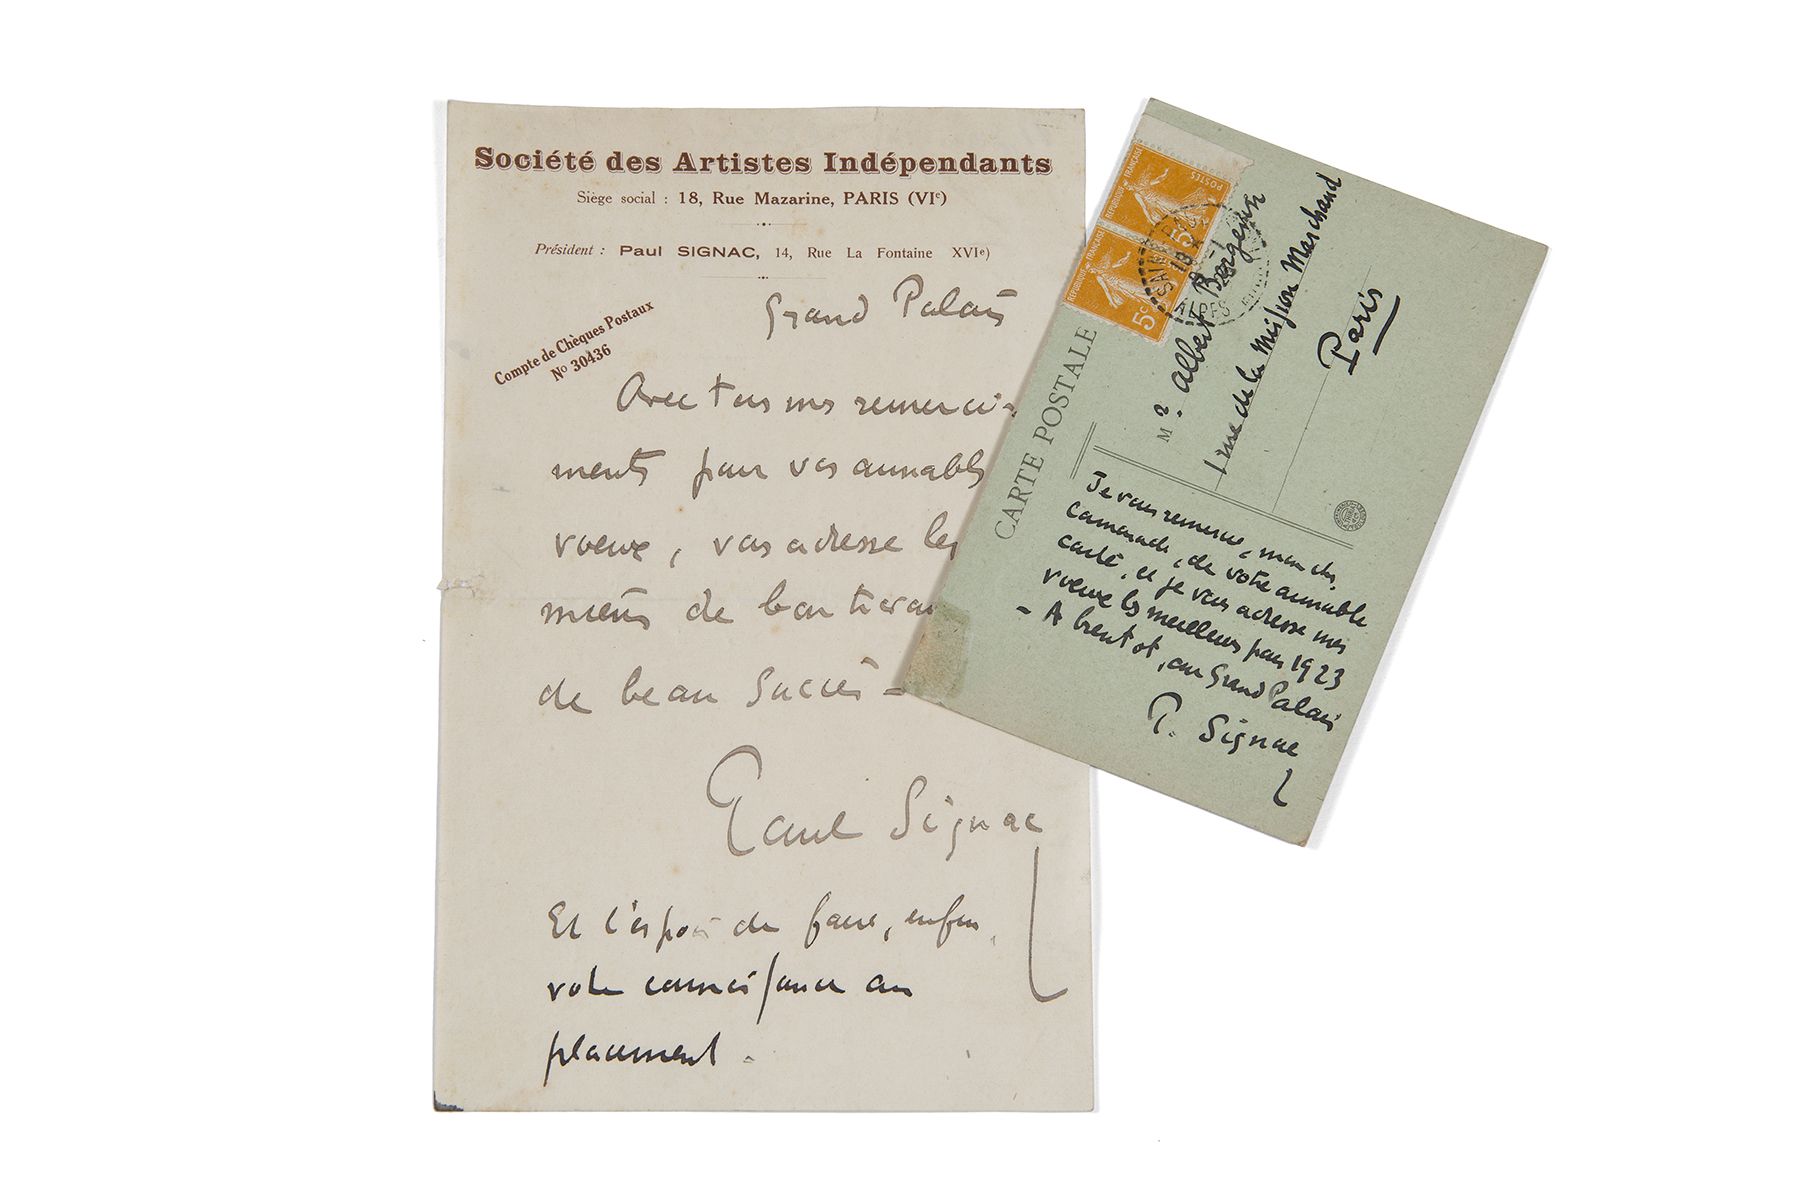 Société des Artistes Indépendants
Siège social : 18, Rue Mazarine, PARIS (VIe)
Président : Paul SIGNAC, 14, Rue La Fontaine XVIe)
Compte de Chèques Postaux
No 30436
Grand Palais
Avec tous mes remercie-
ments pour vos aimables
voeux, vous adresse les
miens de bon travail
de beau succès –
Paul Signac
Et l'espoir de faire, enfin,
votre connaissance au
placement.
CARTE POSTALE
RÉPUBLIQUE FRANÇAISE
POSTES
5c
RÉPUBLIQUE FRANÇAISE
5c
ALPES
Mr. Albert Bergevin
1 rue de la Mission Marchand
Paris
Je vous remercie, mon cher
camarade, de votre aimable
carte, et je vous adresse mes
voeux les meilleurs pour 1923
– A bientot, au Grand Palais
P. Signac